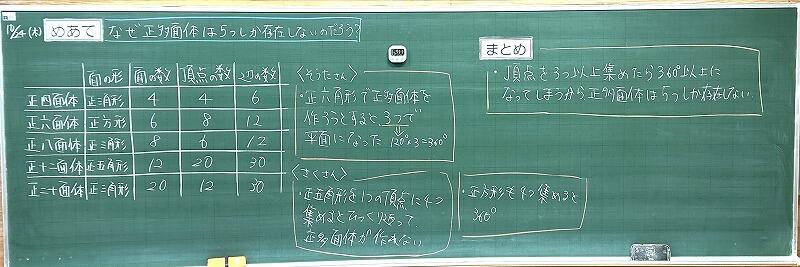 12/24(火) めあて なぜ正多面体は5つしか存在しないのだろう?
面の形 面の数 頂点の数 辺の数
正四面体 正三角形 4 4 6
正六面体 正方形 6 8 12
正八面体 正三角形 8 6 12
正十二面体 正五角形 12 20 30
正二十面体 正三角形 20 12 30
〈そうたさん〉
・正六角形で正多面体を
作ろうとすると3つで
平面になった 120°×3=360°
〈さくさん〉
・正五角形を1つの頂点に4つ
集めると
正多面体が作れない
・正方形も4つ集めると
360°
まとめ
・頂点を3つ以上集めたら360°以上に
なってしまうから正多面体は5つしか存在しない